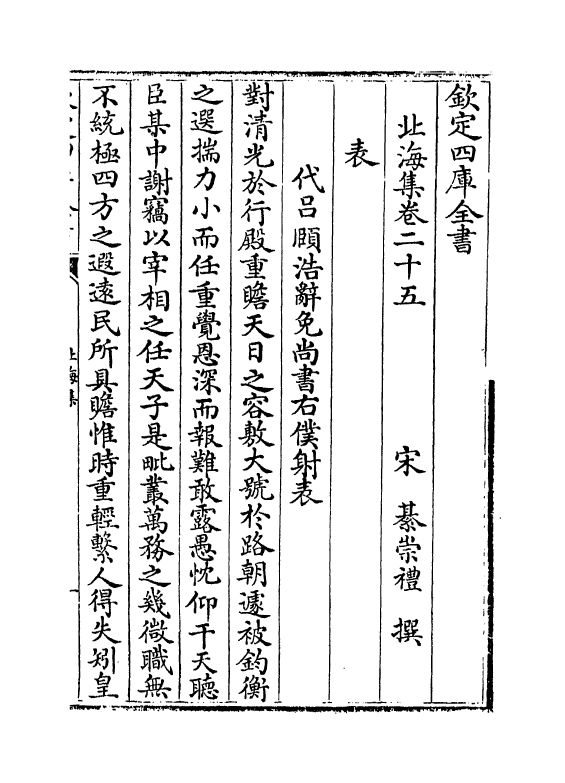 欽定四庫全書
北海集卷二十五 宋 綦崇禮 撰
表
代呂頤浩辭免尚書右僕射表
對清光於行殿重瞻天日之容敷大號於路朝遽被鈞衡
之選揣力小而任重覺恩深而報難敢露愚忱仰干天聽
臣某中謝竊以宰相之任天子是毗叢萬務之幾微職無
不統極四方之遐遠民所具瞻惟時重輕繫人得失矧皇
北海集
一